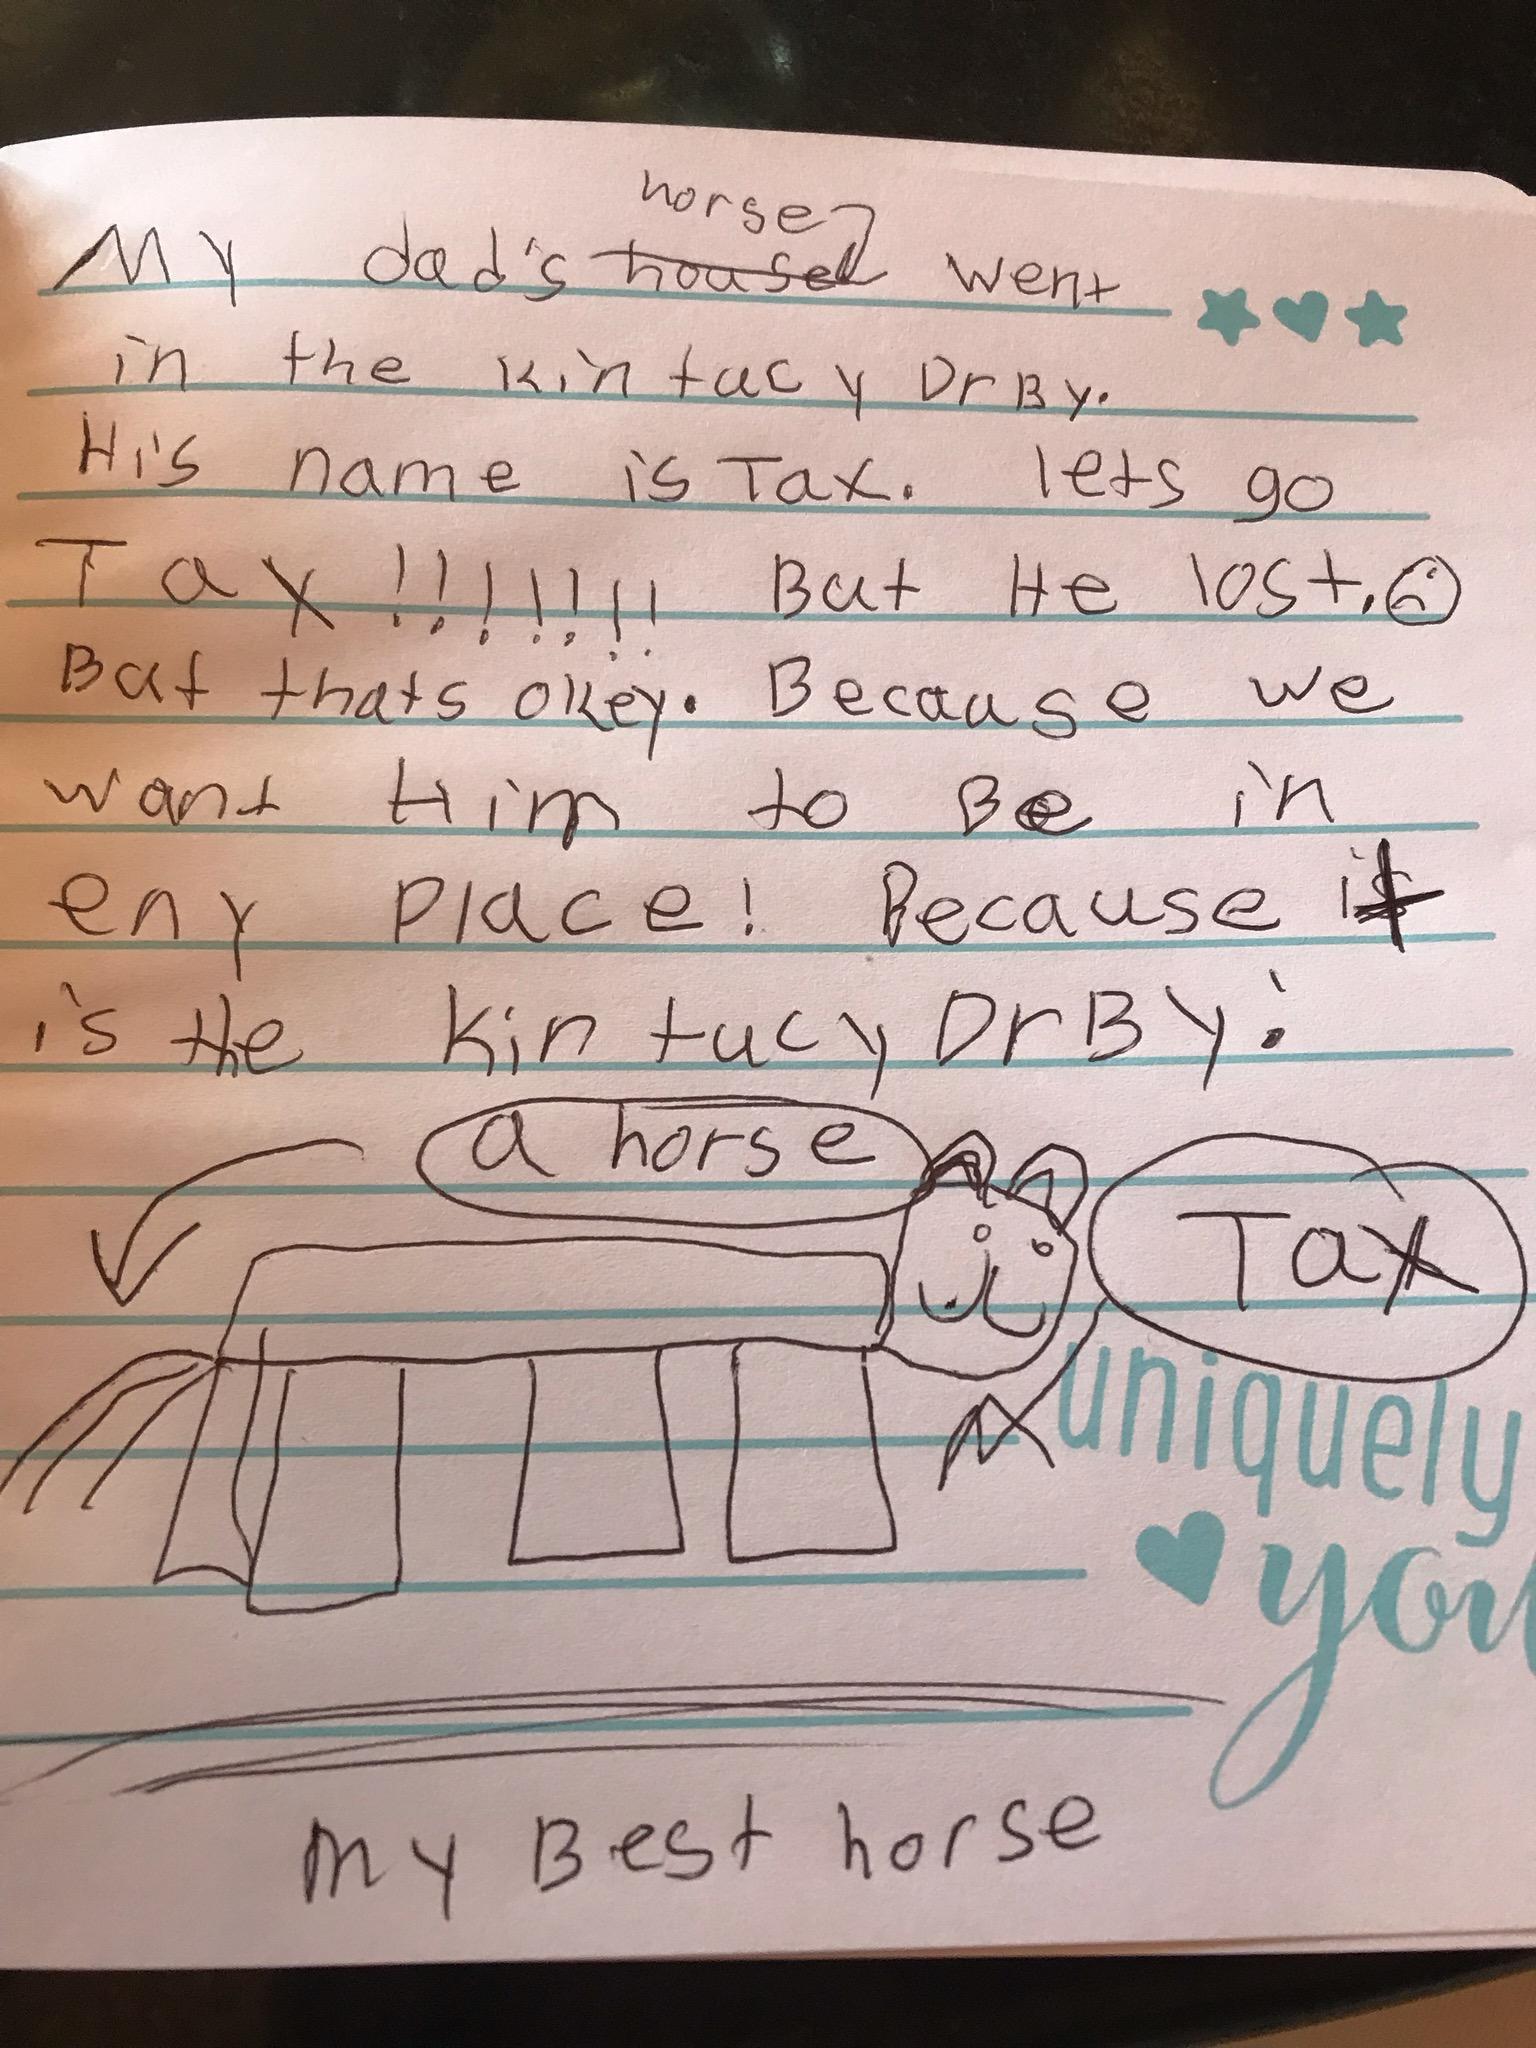 horse
My dad's house went
in the Kintucy DrBy.
His name is Tax. lets go
Tax !!!!!!! But He lost.
But thats okey. Because we
want Him to Be in
eny place! Because it
is the Kintucy DrBy!
a horse
Tax
uniquely
you
My Best horse